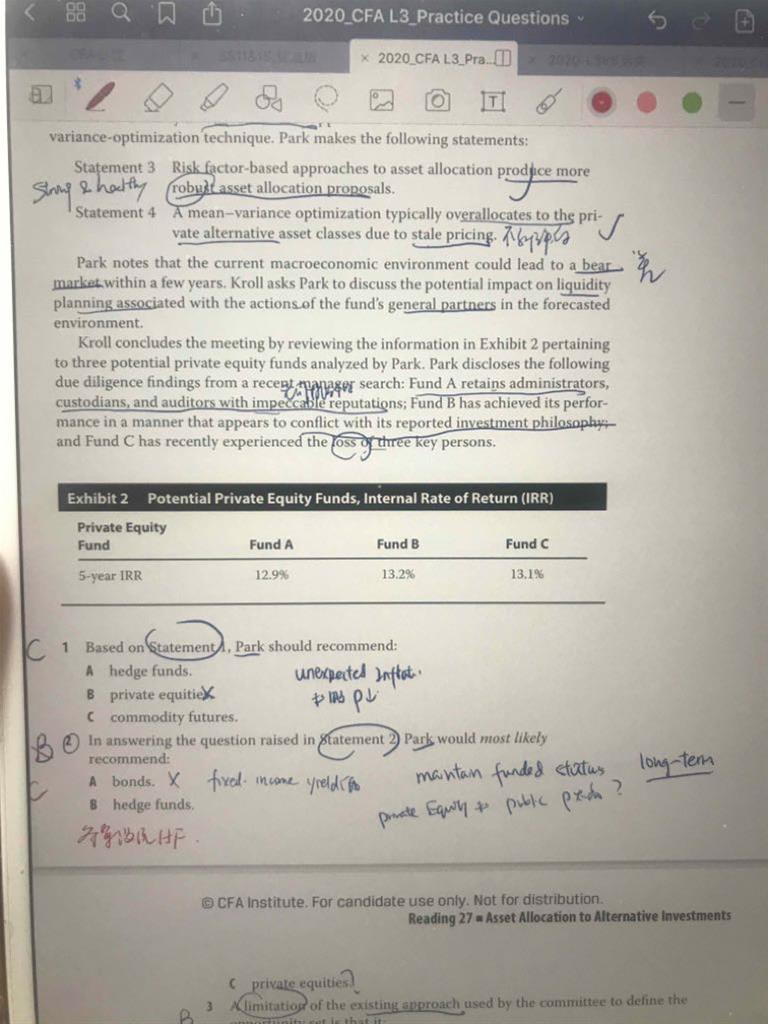 2020_CFA L3_Practice Questions
2020_CFA L3_Pra...
variance-optimization technique. Park makes the following statements:
Statement 3 Risk factor-based approaches to asset allocation produce more
robust asset allocation proposals.
Strong & healthy
Statement 4 A mean–variance optimization typically overallocates to the pri-
vate alternative asset classes due to stale pricing.
Park notes that the current macroeconomic environment could lead to a bear
market within a few years. Kroll asks Park to discuss the potential impact on liquidity
planning associated with the actions of the fund's general partners in the forecasted
environment.
Kroll concludes the meeting by reviewing the information in Exhibit 2 pertaining
to three potential private equity funds analyzed by Park. Park discloses the following
due diligence findings from a recent manager search: Fund A retains administrators,
custodians, and auditors with impeccable reputations; Fund B has achieved its perfor-
mance in a manner that appears to conflict with its reported investment philosophy;
and Fund C has recently experienced the loss of three key persons.
Exhibit 2 Potential Private Equity Funds, Internal Rate of Return (IRR)
Private Equity
Fund Fund A Fund B Fund C
5-year IRR 12.9% 13.2% 13.1%
C 1 Based on Statement 1, Park should recommend:
A hedge funds.
unexpected Inflat.
B private equities
P↓
C commodity futures.
B 2 In answering the question raised in Statement 2, Park would most likely
recommend:
A bonds. X fixed-income yield
maintain funded status long-term
B hedge funds.
private Equity public ?
C
HF.
© CFA Institute. For candidate use only. Not for distribution.
Reading 27 ■ Asset Allocation to Alternative Investments
C private equities.
B 3 A limitation of the existing approach used by the committee to define the
opportunity set is that it: